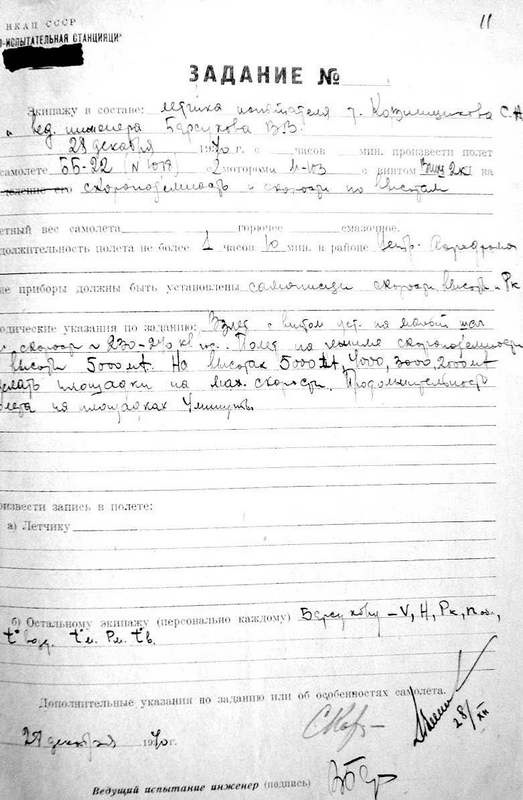 11
НКАП СССР
О-ИСПЫТАТЕЛЬНАЯ СТАНЦИЯ
ЗАДАНИЕ №
Экипажу в составе: летчика испытателя т. С.А
и вед. инженера Барсукова В.В.
28 декабря 1940 г. с часов мин. произвести полет
самолете ББ-22 (N 1078) с 2 моторами М-103 с винтом на
скороподъемность и скорости по высотам
етный вес самолета горючее смазочное.
должительность полета не более 1 часов 10 мин. в районе центр. Аэродрома
ие приборы должны быть установлены самописцы скорости, высоты, Рк
одические указания по заданию: Взлет с винтом уст. на малый шаг
скорости 230-240 Полет на режиме скороподъемности
высоты 5000 мт. На высотах 5000 мт, 4000, 3000, 2000 мт
делать площадки на мах. скорости. Продолжительность
олета на площадках 4 минуты
оизвести запись в полете:
а) Летчику
б) Остальному экипажу (персонально каждому) Барсукову - V, H, Рк,
t° вод. t°м. Рм. t°в.
Дополнительные указания по заданию или об особенностях самолета.
28/XII
декабря 1940 г.
Ведущий испытание инженер (подпись)